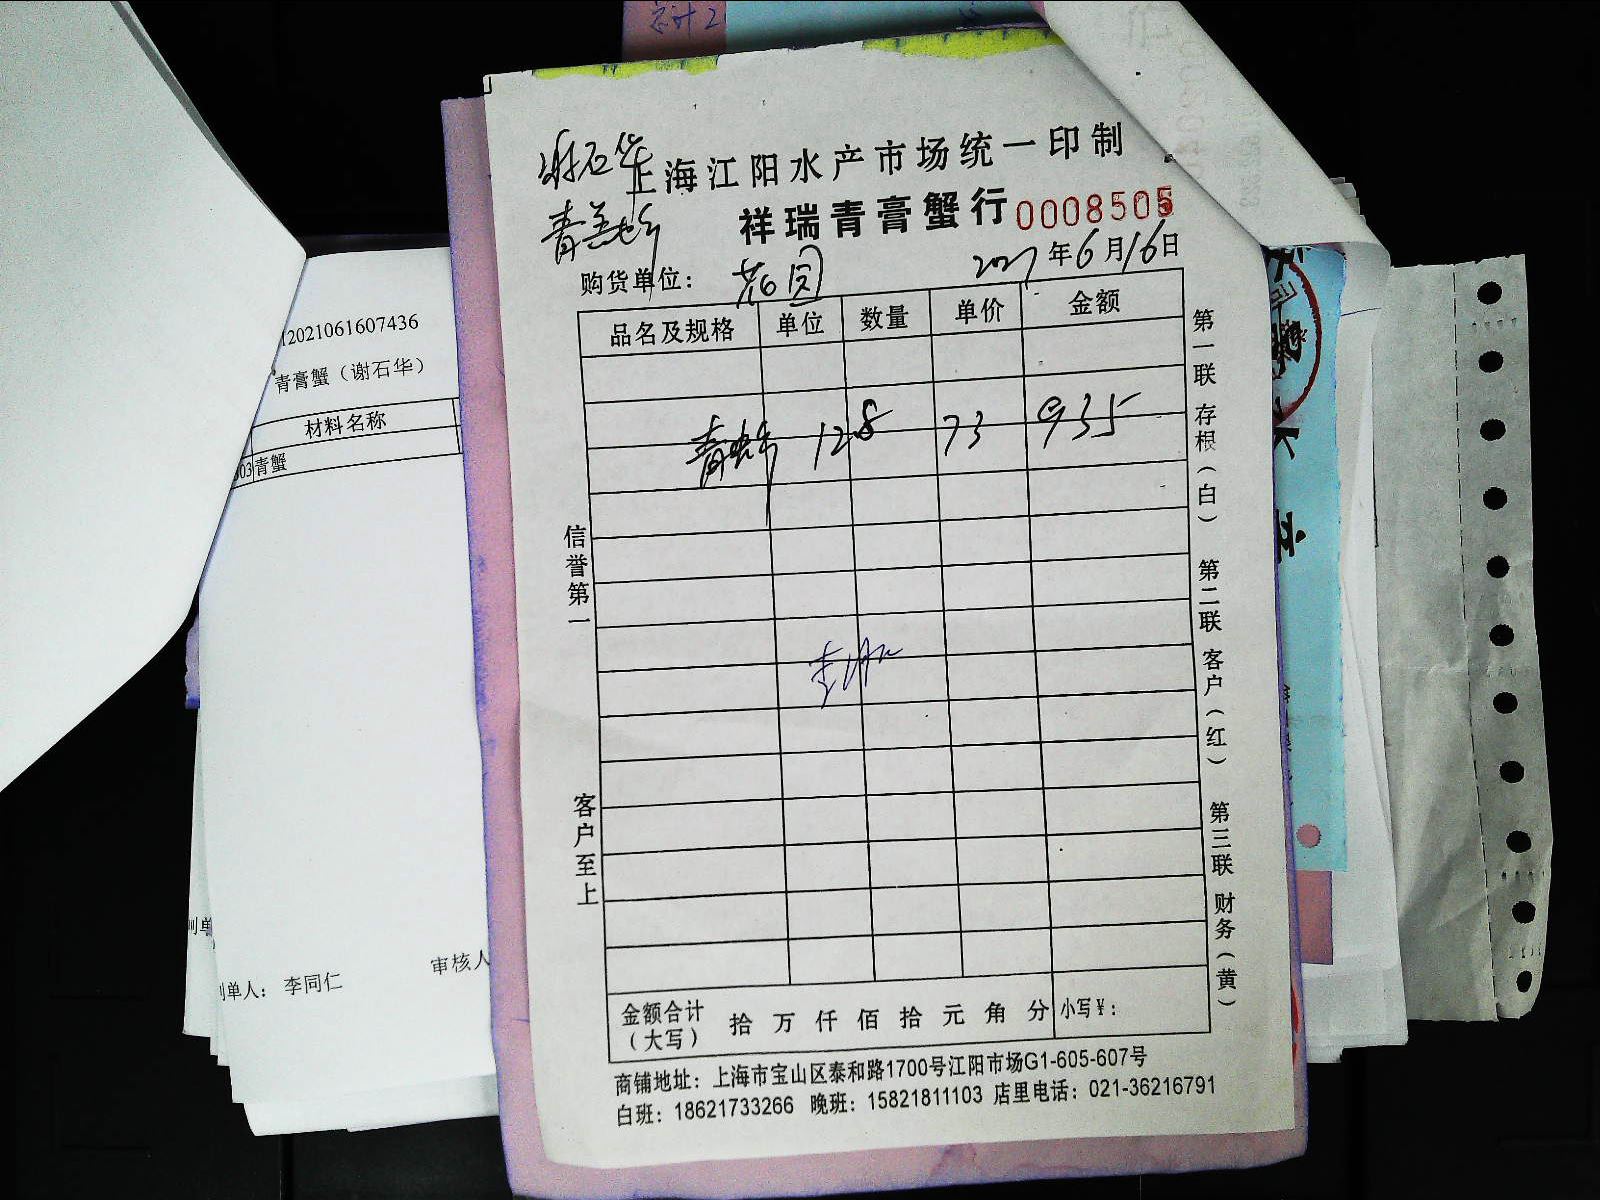 总计2
谢石华
上海江阳水产市场统一印制
祥瑞青膏蟹行 0008505
购货单位: 花园 2021年6月16日
品名及规格 单位 数量 单价 金额
青蟹 128 73 935
信誉第一
客户至上
第一联 存根(白) 第二联 客户(红) 第三联 财务(黄)
金额合计(大写) 拾 万 仟 佰 拾 元 角 分 小写¥:
商铺地址: 上海市宝山区泰和路1700号江阳市场G1-605-607号
白班: 18621733266 晚班: 15821811103 店里电话: 021-36216791
12021061607436
青膏蟹（谢石华）
材料名称
03 青蟹
制单
制单人: 李同仁
审核人